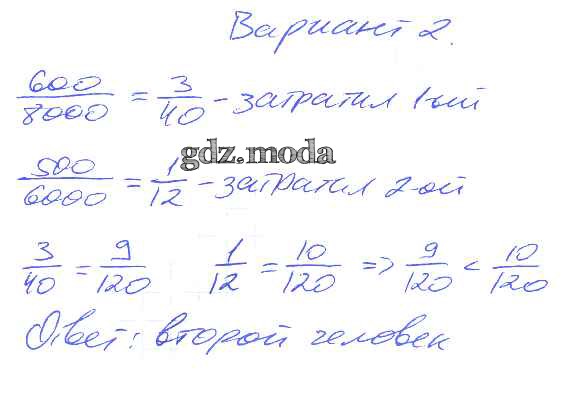 Вариант 2.
600/8000 = 3/40 - затратил 1-ый
gdz.moda
500/6000 = 1/12 - затратил 2-ой
3/40 = 9/120 1/12 = 10/120 => 9/120 < 10/120
Ответ: второй человек